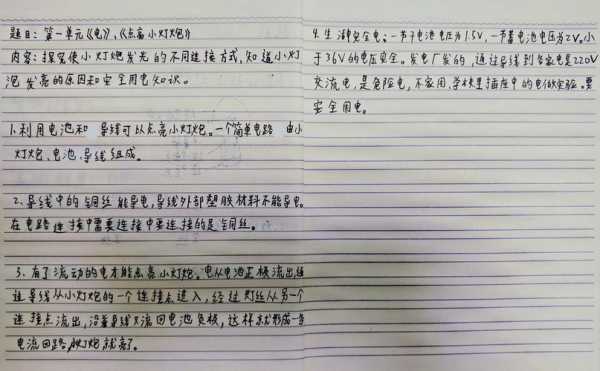 题目：第一单元《电》，《点亮小灯炮》
内容：探究使小灯炮发光的不同连接方式，知道小灯
泡发亮的原因和安全用电知识。
1.利用电池和导线可以点亮小灯炮。一个简单电路由小
灯炮、电池、导线组成。
2、导线中的铜丝能导电，导线外部塑胶材料不能导电。
在电路连接中需要连接中要连接的是铜丝。
3、有了流动的电才能点亮小灯炮。电从电池正极流出，经
过导线从小灯炮的一个连接点进入，经过灯丝从另一个
连接点流出，沿着导线又流回电池负极，这样就形成一个
电流回路，小灯炮就亮了。
4.生活中安全电：一节干电池电压为1.5V，一节蓄电池电压为2V。小
于36V的电压安全。发电厂发的，通过导线到各家电是220V
交流电，是危险电，不家用、学校里插座中的电做实验。要
安全用电。